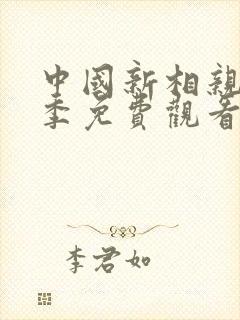 中國新相親
季免費觀看
李君如